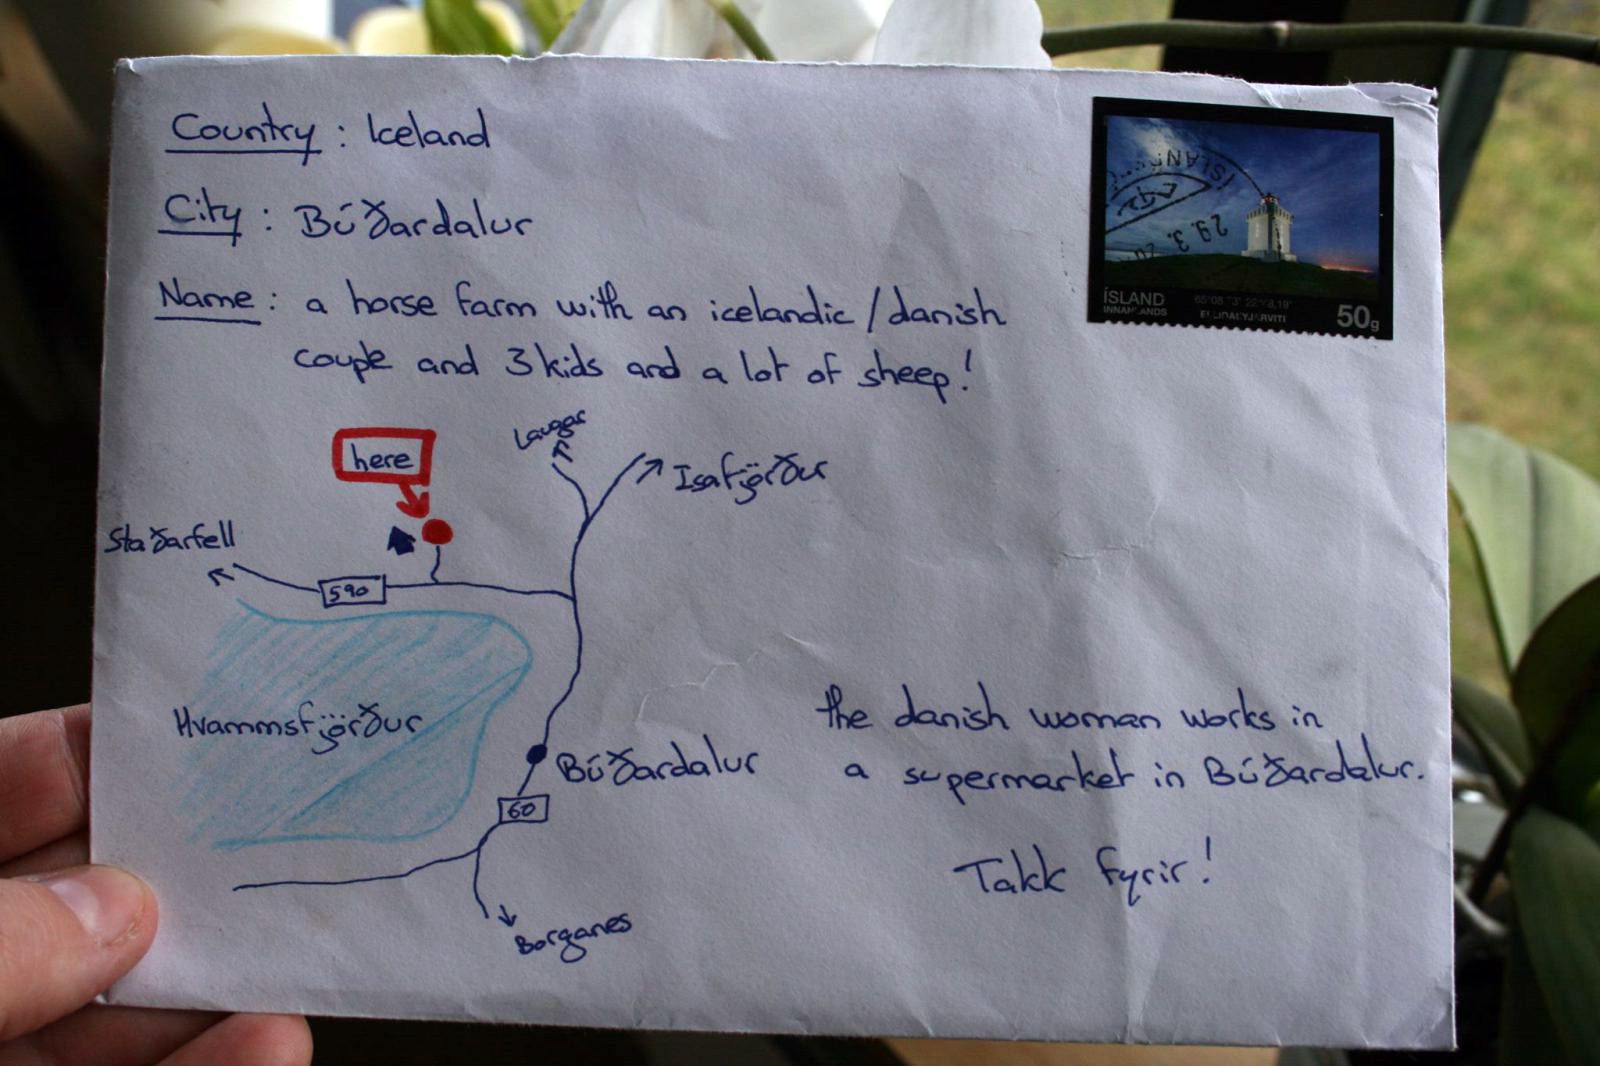 Country: Iceland
City: Búðardalur
Name: a horse farm with an icelandic/danish
couple and 3 kids and a lot of sheep!
ÍSLAND
29.3.
ÍSLAND
INNANLANDS
50g
here
Laugar
Isafjörður
Staðarfell
590
Hvammsfjörður
Búðardalur
60
Borganes
the danish woman works in
a supermarket in Búðardalur.
Takk fyrir!